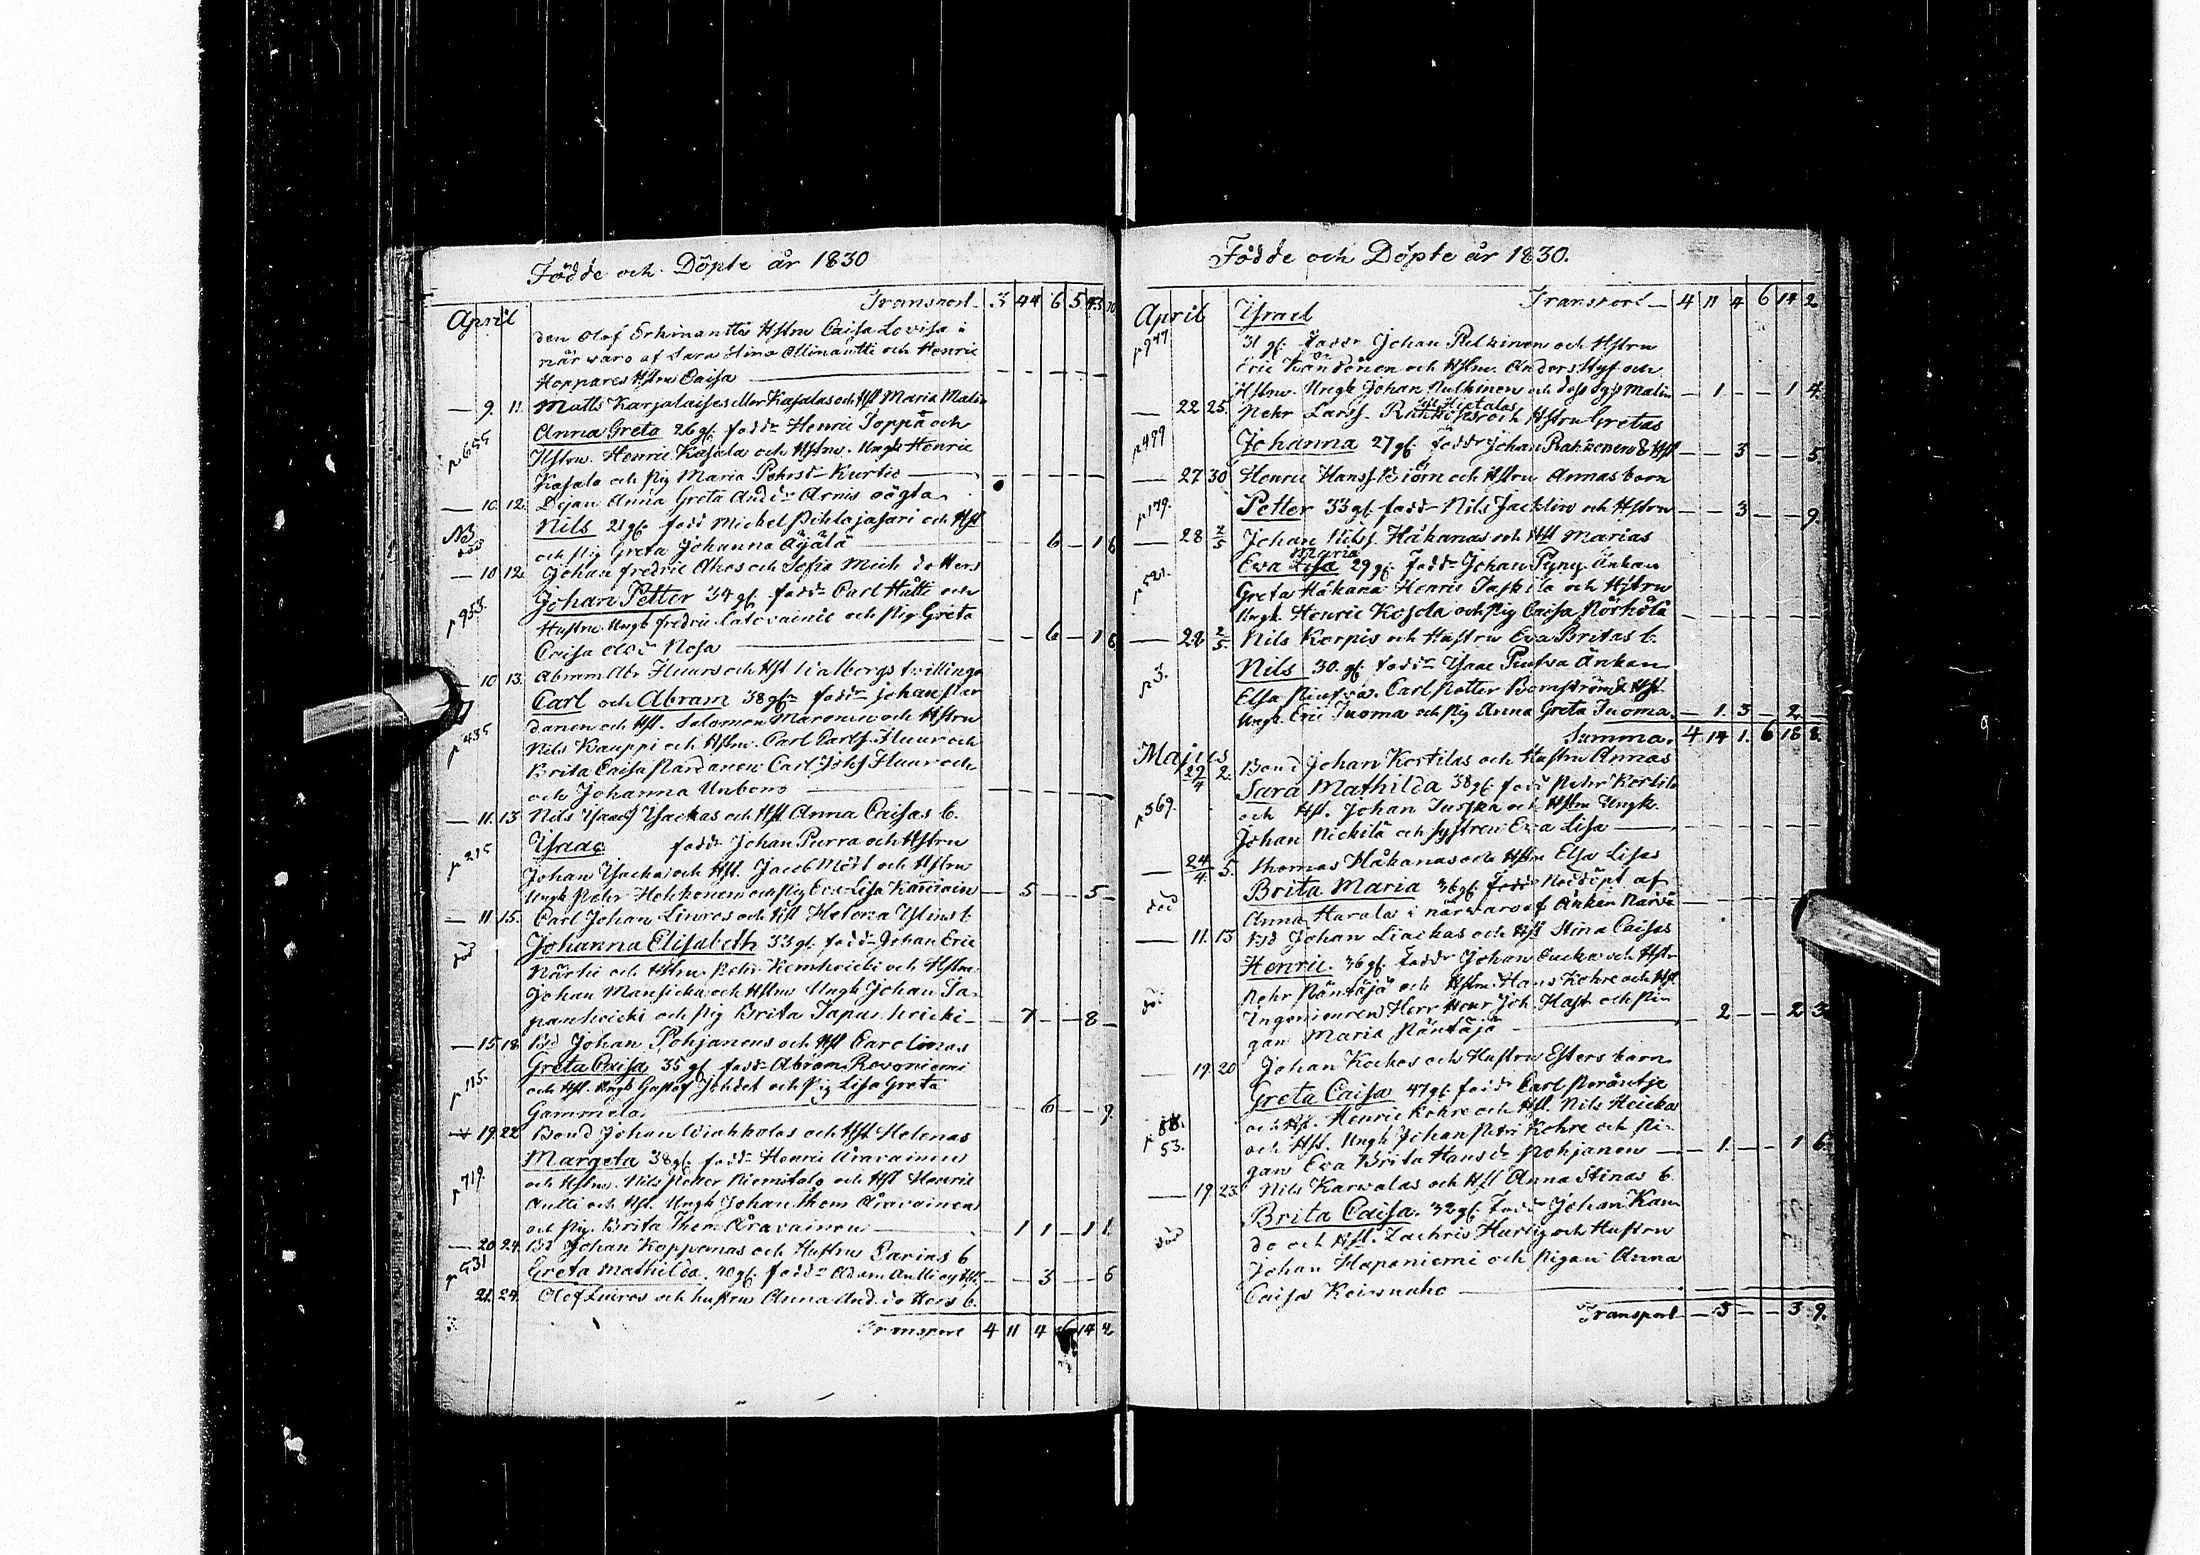 Födde och Döpte år 1830
Transport 3 44 6 5 43 10
April
den Olof Erkinanttis Hstru Caisa Lovisa i
när varo af Sara Stina Ollinantti och Henric
Hoppares Hstru Caisa
9. 11. Matts Karjalaises eller Kasalas och Hst Maria Malin
p 655 Anna Greta 26 gl. faddr Henric Toppa och
Hstru. Henric Kasala och Hstru. Ungk Henric
Kasala och Pig Maria Kurtti
10. 12. Dejan Anna Greta Andr Arnis oägta
NB död Nils 21 gl. fadd Michel Pihlajasari och Hst
och Pig Greta Johanna Äijälä 6 1 6
10 12. Johan Fredric Ahos och Sofia Mich dotters
p 953. Johan Petter 34 gl. faddr Carl Hutti och
Hustru Ungk Fredric och Pig Greta
Caisa Nosa 6 1 6
10 13. Abram Abr. Huurs och Hst Walborgs tvillingar
Carl och Abram 38 gl. faddr Johan
p 435 danen och Hst. Salomon Maronen och Hstru
Nils Kauppi och Hstru. Carl Carls. Huur och
Brita Caisa Carl Johs Huur och
och Johanna Unbom
11. 13 Nils Isacs Isackas och Hst Anna Caisas b.
p 215 Isaac faddr Johan Purra och Hstru
Johan Isacka och Hst. Jacob Mört och Hstru
Ungk Pehr Heikonen och Pig Eva Lisa 5 5
11. 15. Carl Johan Linros och Hst Helena b.
död Johanna Elisabeth 33 gl. fadd Johan Eric
Närhi och Hstru. Pehr Kemheicki och Hstru.
Johan Mansicka och Hstru Ungk Johan Ta-
panheicki och Pig Brita Tapanheicki 7 8
15 18. Bd Johan Pohjanens och Hst Carolinas
p 115. Greta Caisa 35 gl fadd Abram Rovoniemi
och Hst. Ungk Gustaf och Pig Lisa Greta
Gammela 6 9
19. 22 Bond Johan Wiahkolas och Hst Helenas
Margeta 38 gl. faddr Henric Aravainen
p 719. och Hstru. Nils Petter Niemitalo och Hst Henric
Antti och Hst. Ungk Johan Thom Aravainen
och Pig. Brita Thom Aravainen 1 1 1 1
20 24. Bd Johan Koppernas och Hustru Carins b
p 531 Greta Mathilda. 40 gl. faddr Adam Antti och Hst. 3 6
21. 24. Olof Luiros och hustru Anna And. dotters b.
Transport 4 11 4 6 14 2
Födde och Döpte år 1830.
Transport 4 11 4 6 14 2
April Israel
p 947. 31 gl. faddr Johan Pulkinen och Hstru
Eric Köndönen och Hstru. Anders Hyf och
Hstru. Ungk Johan Pulkinen och Malin 1 1 4
22 25. Pehr Larss. Hietalas och Hstru Gretas
p 499 Johanna 27 gl. faddr Johan Rahkonen & Hst 3 5
27 30 Henric Hanss. Björn och Hstru Annas barn
p 179. Petter 33 gl. faddr Nils Jacklin och Hstru 3 9.
28 2/5 Johan Nilss. Håkanas och Hst Marias
p 521. Eva Lisa Maria 29 gl. faddr Johan Pyny. Änkan
Greta Håkana Henric Taskila och Hstru
Ungk. Henric Kosela och Pig Caisa
28 2/5. Nils Korpis och Hustru Eva Britas b.
p 3. Nils 30. gl. faddr Isaac Piufva Änkan
Elsa Piufva. Carl Petter Bomström & Hst.
Ungk. Eric Tuoma och Pig Anna Greta Tuoma. 1. 3 2
Summa. 4 14 1. 6 18 8.
Majus
29/4 2. Bond Johan Kortilas och Hustru Annas
p 569. Sara Mathilda 38 gl. fadd Pehr Kortila
och Hst. Johan Juska och Hstru Ungk.
Johan Nickilä och Systren Eva Lisa
24/4. 5. Thomas Håkanas och Hstru Elsa Lisas
död Brita Maria 36 gl. Noddöpt af
Anna Harala i närvaro af Änkan
11. 13 Bd Johan Liackas och Hst Stina Caisas
Henric. 36 gl. faddr Johan Cucka och Hstr
död Pehr Pöntäjä och Hstru Hans Kohre och Hst
Ingenieuren Herr Joh. Hast och Pi- 2 2 3
gan Maria Pöntäjä
19. 20 Johan Kockos och Hustru Esters barn
Greta Caisa 47 gl. fadd Carl Poräntje
p 88. och Hst. Henric Kohre och Hst. Nils Heicka
53. och Hst. Ungk Johan Petri Kohre och Pi-
gan Eva Brita Hans dr Pohjanen 1. 1 6.
19. 23. Nils Karwalas och Hst Anna Stinas b
Brita Caisa. 32 gl. fadd Johan Kan
död do och Hst. Zachris Hurtig och Hustru
Johan Haponiemi och Pigan Anna
Caisa Keinunaho
Transport 3 3 9.